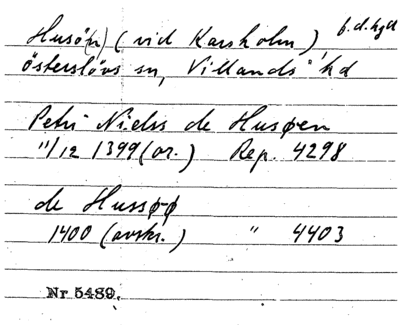 Husö(n) (vid Karsholm) b.d.hgd
Österslövs sn, Villands hd
Petri Nielss de Husøen
11/12 1399 (or.) Rep. 4298
de Hussøø
1400 (avskr.) " 4403
Nr 5489.